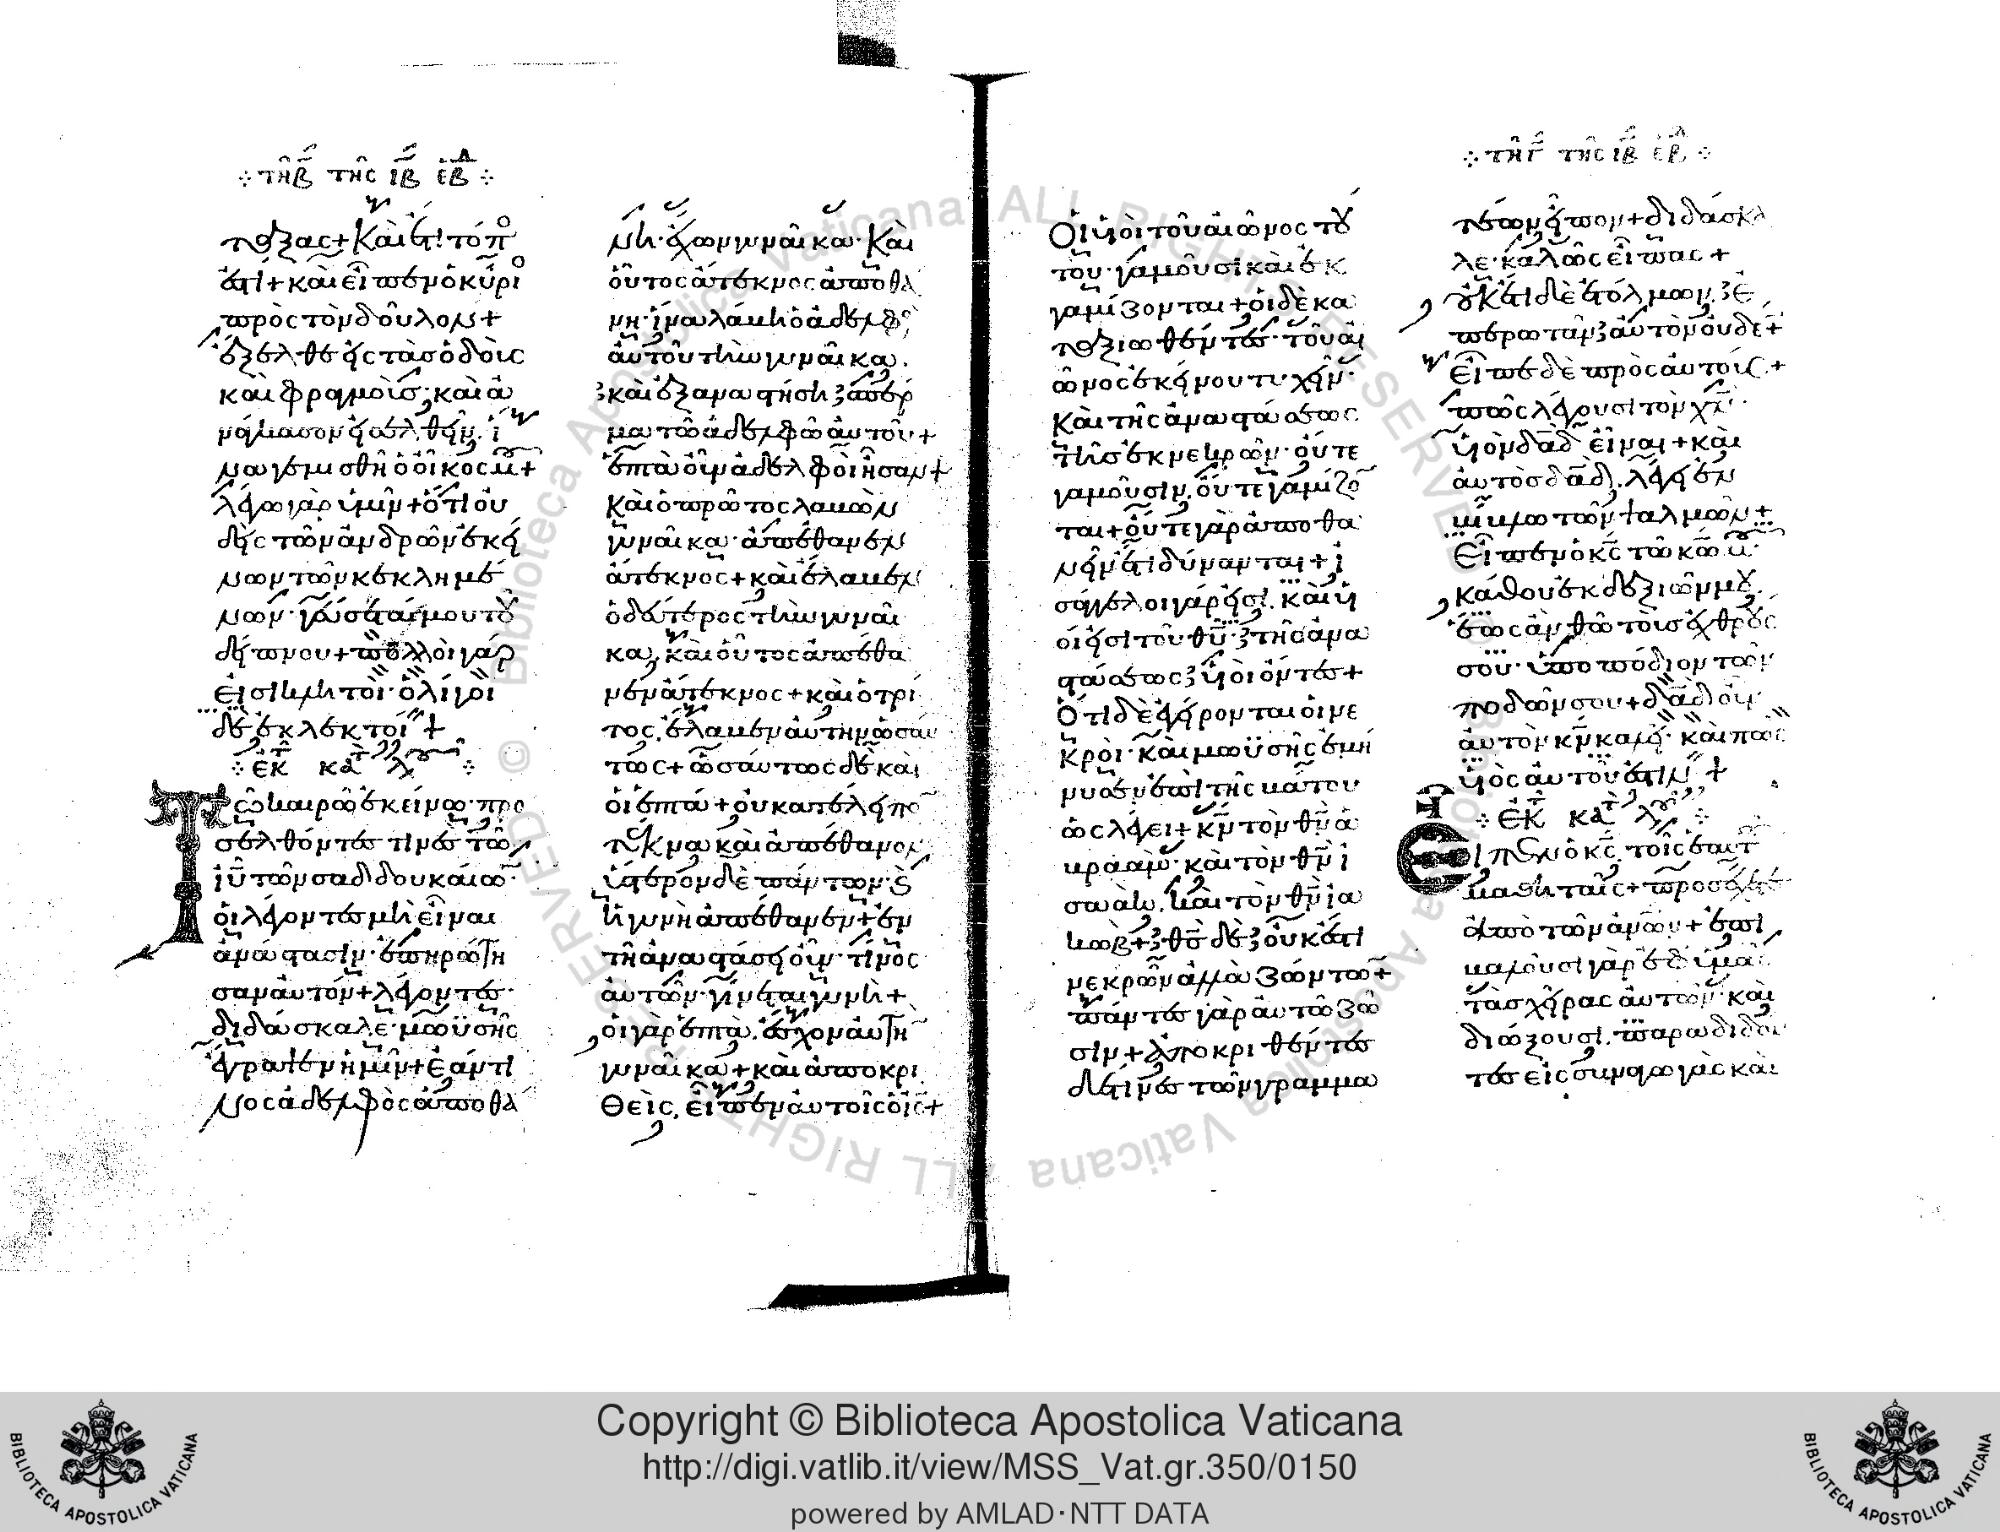 τῆ β τῆς ιβ ἑβδ
τάξας + Καὶ ἔτι τόπο
ἐστὶ + καὶ εἶπεν ὁ κύριο
πρὸς τὸν δοῦλον +
ἔξελθε εἰς τὰς ὁδοὺς
καὶ φραγμοὺς· καὶ ἀ
νάγκασον εἰσελθεῖν. ἵ
να γεμισθῆ ὁ οἶκος μου +
λέγω γὰρ ὑμῖν + ὅτι οὐ
δεὶς τῶν ἀνδρῶν ἐκεί
νων τῶν κεκλημέ
νων· γεύσεταί μου τοῦ
δείπνου + πολλοὶ γάρ
εἰσι κλητοὶ· ὀλίγοι
δὲ ἐκλεκτοί +
ἐκ κατὰ λουκ
Τῶ καιρῶ ἐκείνω· προ
σελθόντες τινὲς τῶ
ἰυ τῶν σαδδουκαίω·
οἱ λέγοντες μὴ εἶναι
ἀνάστασιν· ἐπηρώτη
σαν αὐτόν + λέγοντες·
διδάσκαλε· μωϋσῆς
ἔγραψεν ἡμῖν + ἐάν τι
νος ἀδελφὸς ἀποθά
νη· ἔχων γυναῖκα· Καὶ
οὗτος ἄτεκνος ἀποθά
νη· ἵνα λάβη ὁ ἀδελφὸς
αὐτοῦ τὴν γυναῖκα.
καὶ ἐξαναστήση σπέρ
μα τῶ ἀδελφῶ αὐτοῦ +
ἑπτὰ οὖν ἀδελφοὶ ἦσαν +
Καὶ ὁ πρῶτος λαβὼν
γυναῖκα· ἀπέθανεν
ἄτεκνος + καὶ ἔλαβεν
ὁ δεύτερος τὴν γυναῖ
κα, καὶ οὗτος ἀπέθα
νεν ἄτεκνος + καὶ ὁ τρί
τος, ἔλαβεν αὐτὴν ὡσαύ
τως + ὡσαύτως δὲ καὶ
οἱ ἑπτά + οὐ κατέλιπον
τέκνα καὶ ἀπέθανον
ὕστερον δὲ πάντων·
ἡ γυνὴ ἀπέθανεν + ἐν
τῆ ἀναστάσει οὖν· τίνος
αὐτῶν· γίνεται γυνή +
οἱ γὰρ ἑπτὰ, ἔσχον αὐτὴ
γυναῖκα + καὶ ἀποκρι
θεὶς, εἶπεν αὐτοῖς ὁ ις +
Οἱ υἱοὶ τοῦ αἰῶνος τού
του· γαμοῦσι καὶ ἐκ
γαμίζονται + οἱ δὲ κα
ταξιωθέντες· τοῦ αἰ
ῶνος ἐκείνου τυχεῖν·
Καὶ τῆς ἀναστάσεως
τῆς ἐκ νεκρῶν· οὔτε
γαμοῦσιν, οὔτε γαμίζο
ται + οὔτε γὰρ ἀποθα
νεῖν ἔτι δύνανται + ἰ
σάγγελοι γάρ εἰσι, καὶ υἱ
οί εἰσι τοῦ θυ· τῆς ἀνα
στάσεως υἱοὶ ὄντες +
Ὅτι δὲ ἐγείρονται οἱ νε
κροὶ· καὶ μωϋσῆς ἐμή
νυσεν ἐπὶ τῆς βάτου
ὡς λέγει + κν τὸν θν ἀ
βραὰμ· καὶ τὸν θν ἰ
σαὰκ, καὶ τὸν θν ἰα
κώβ + θς δὲ οὐκ ἔστι
νεκρῶν ἀλλὰ ζώντων +
πάντες γὰρ αὐτῶ ζῶ
σιν + ἀποκριθέντες
δέ τινες τῶν γραμμα
τῆ γ τῆς ιβ ἑβδ
τέων εἶπον + διδάσκα
λε· καλῶς εἶπας +
οὐκέτι δὲ ἐτόλμων. ἐ
περωτᾶν αὐτὸν οὐδέν +
Εἶπε δὲ πρὸς αὐτούς +
πῶς λέγουσι τὸν χν·
υἱὸν δαδ εἶναι + καὶ
αὐτὸς δαδ, λέγει ἐν
βίβλω τῶν ψαλμῶν +
Εἶπεν ὁ κς τῶ κω μου·
κάθου ἐκ δεξιῶν μου.
ἕως ἂν θῶ τοὺς ἐχθρούς
σου· ὑποπόδιον τῶν
ποδῶν σου + δαδ οὖν
αὐτὸν κν καλεῖ· καὶ πῶς
υἱὸς αὐτοῦ ἐστιν +
ἐκ κατὰ λουκ
Εἶπεν ὁ κς, τοῖς ἑαυτοῦ
μαθηταῖς + προσέχετε
ἀπὸ τῶν ανων + ἐπι
βαλοῦσι γὰρ ἐφ ὑμᾶς
τὰς χεῖρας αὐτῶν· καὶ
διώξουσι, παραδιδόν
τες εἰς συναγωγὰς καὶ
Copyright © Biblioteca Apostolica Vaticana
http://digi.vatlib.it/view/MSS_Vat.gr.350/0150
powered by AMLAD·NTT DATA
BIBLIOTECA APOSTOLICA VATICANA
BIBLIOTECA APOSTOLICA VATICANA